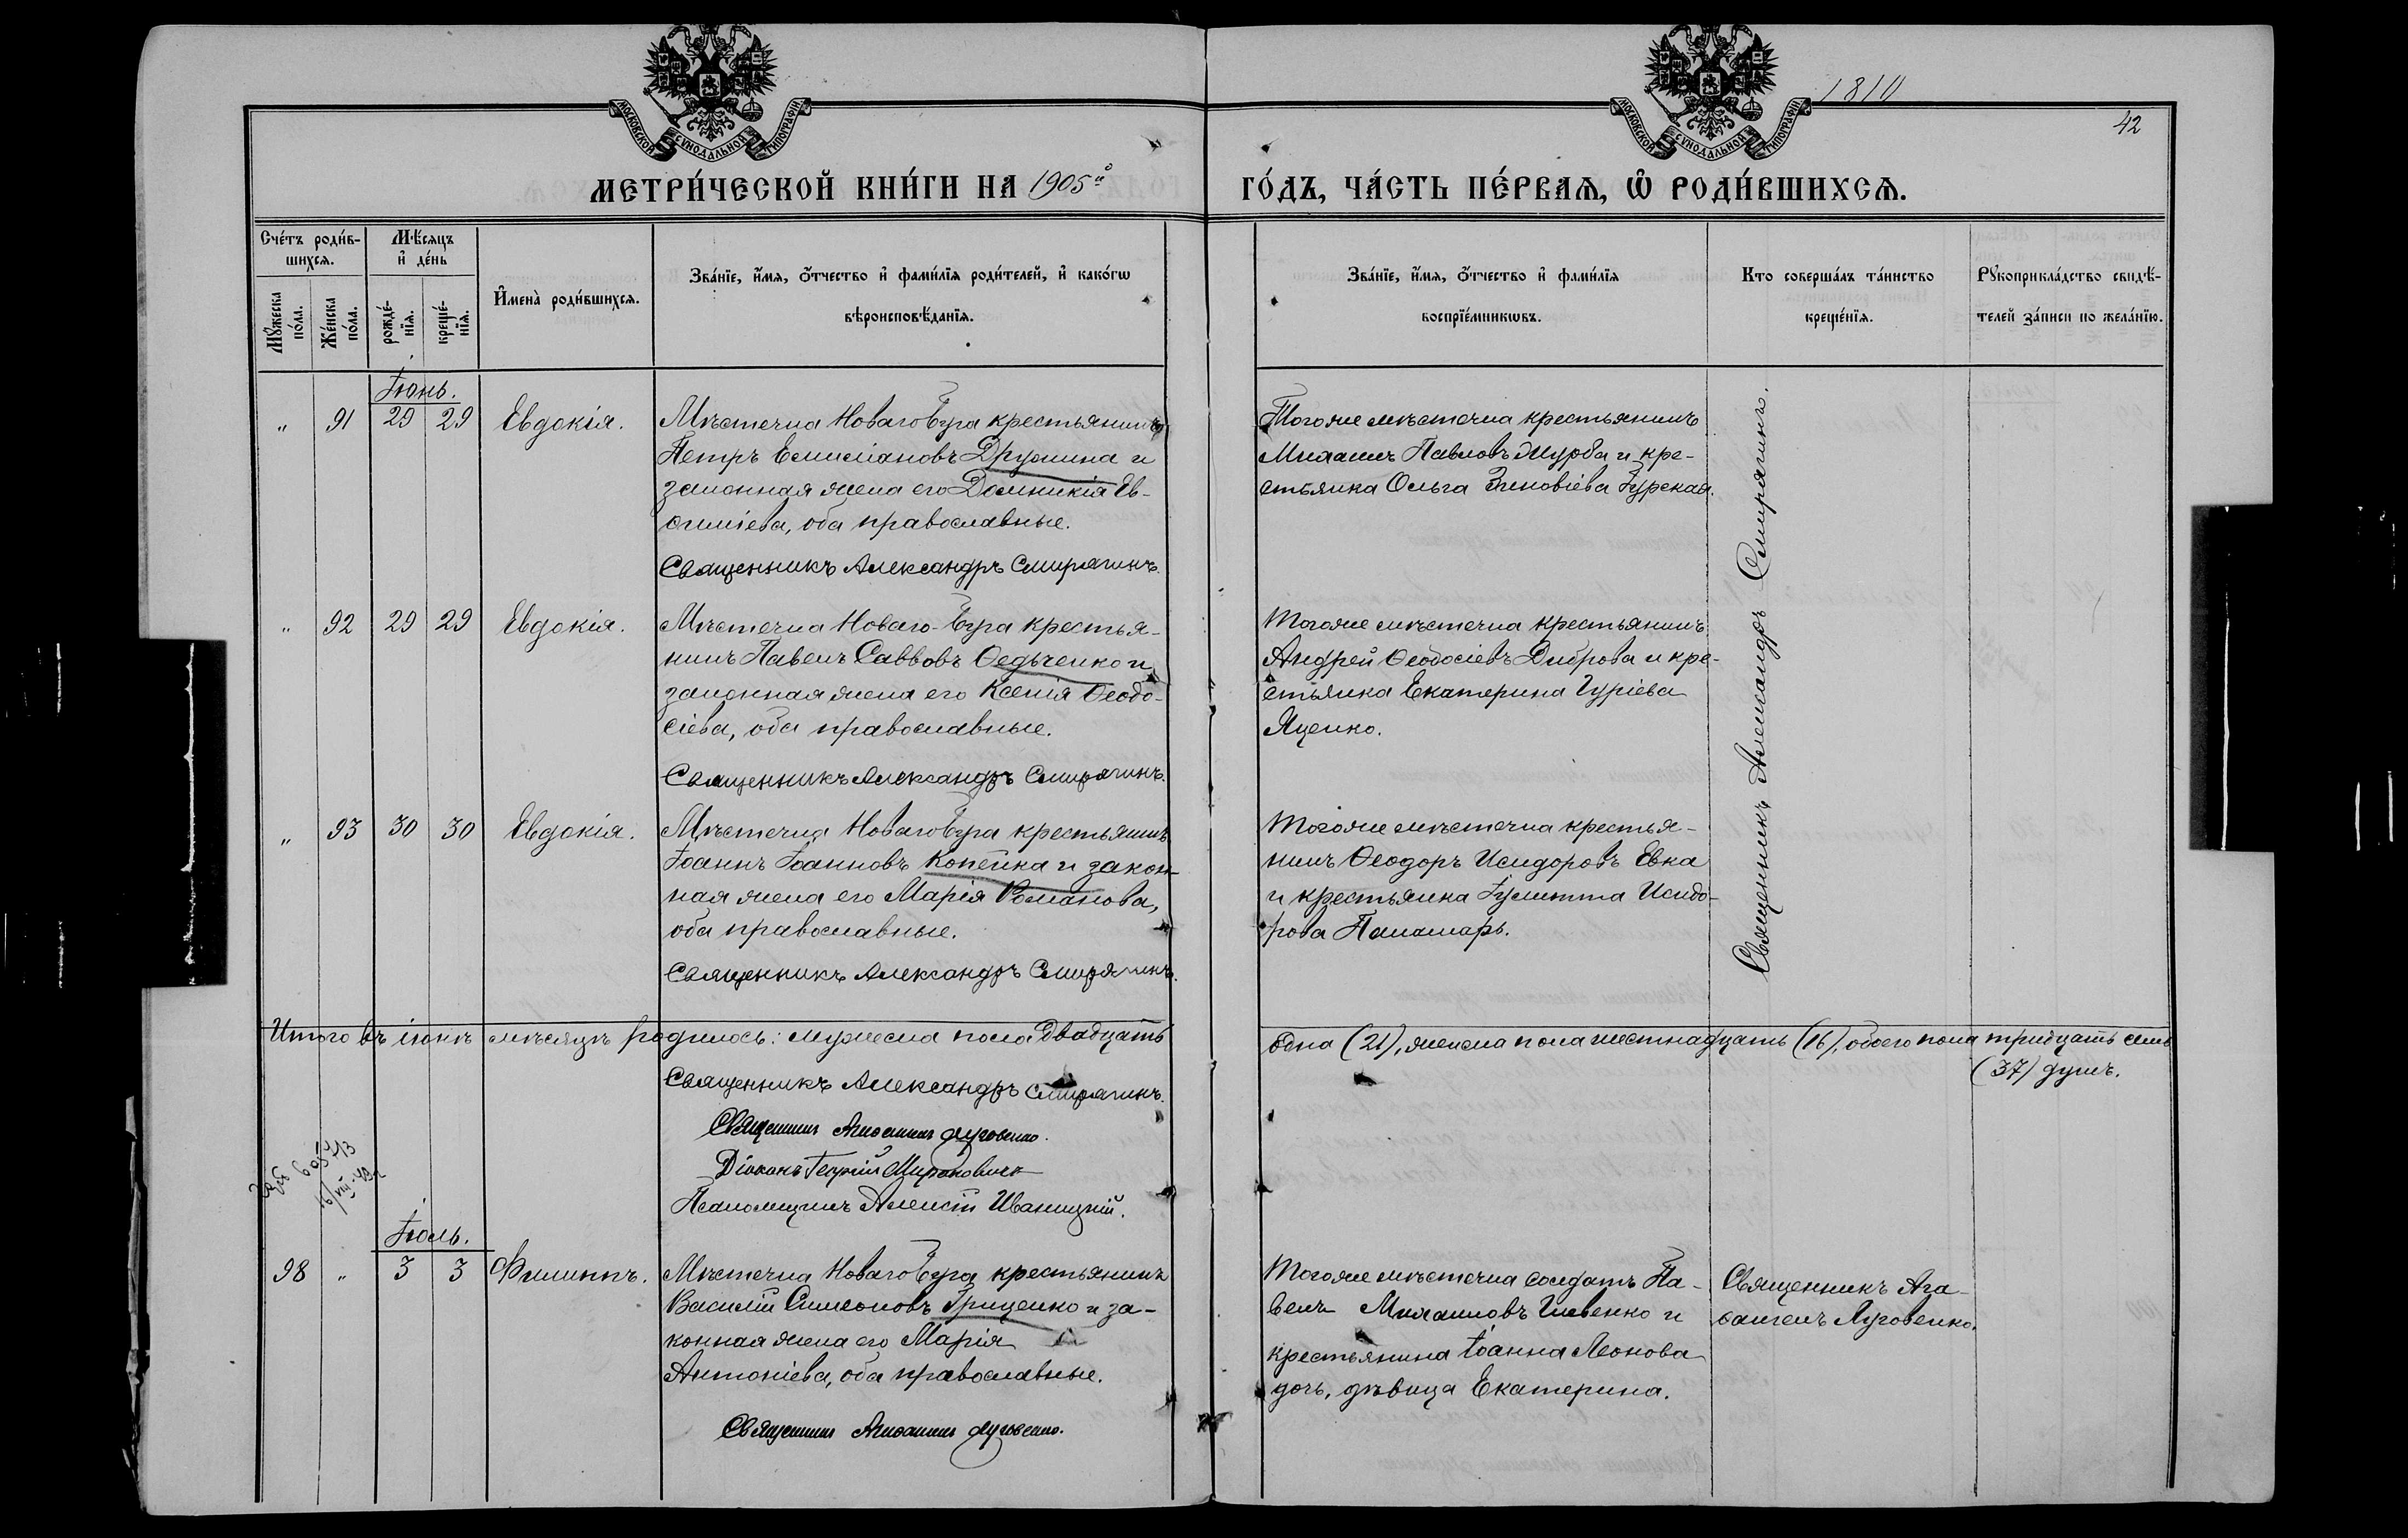 МОСКОВСКОЙ СѴНОДАЛЬНОЙ ТИПОГРАФІИ
МОСКОВСКОЙ СѴНОДАЛЬНОЙ ТИПОГРАФІИ
1810
42
МЕТРИ́ЧЕСКОЙ КНИ́ГИ НА 1905й
ГО́ДЪ, ЧА́СТЬ ПЕ́РВАѦ, Ѡ РОДИ́ВШИХСѦ.
Сче́тъ роди́в-
шихсѧ.
Мꙋжеска по́ла.
Же́нска по́ла.
Мѣ́сѧцъ
и҆ де́нь
рожде́-
нїѧ.
креще́-
нїѧ.
И҆мена̀ роди́вшихсѧ.
Зва́нїе, и҆́мѧ, ѻ҆́тчество и҆ фами́лїѧ роди́телей, и҆ како́гѡ
вѣроисповѣ́данїѧ.
Зва́нїе, и҆́мѧ, ѻ҆́тчество и҆ фами́лїѧ
воспрїе́мникѡвъ.
Кто соверша́лъ та́инство
креще́нїѧ.
Рꙋкоприкла́дство свидѣ́-
телей за́писи по жела́нїю.
Іюнь.
" 91 29 29 Евдокія.
Мѣстечка Новаго Буга крестьянинъ
Петръ Емиліановъ Дружина и
законная жена его Домникія Ев-
ѳиміева, оба православные.
Священникъ Александръ Смирягинъ.
Тогоже мѣстечка крестьянинъ
Михаилъ Павловъ Журба и кре-
стьянка Ольга Зиновіева Гурская.
Священникъ Александръ Смирягинъ.
" 92 29 29 Евдокія.
Мѣстечка Новаго-Буга крестья-
нинъ Павелъ Саввовъ Ѳедьченко и
законная жена его Ксенія Ѳеодо-
сіева, оба православные.
Священникъ Александръ Смирягинъ.
Тогоже мѣстечка крестьянинъ
Андрей Ѳеодосіевъ Диброва и кре-
стьянка Екатерина Гуріева
Яценко.
" 93 30 30 Евдокія.
Мѣстечка Новаго Буга крестьянинъ
Іоаннъ Іоанновъ Копейка и закон-
ная жена его Марія Романова,
оба православные.
Священникъ Александръ Смирягинъ.
Тогоже мѣстечка крестья-
нинъ Ѳеодоръ Исидоровъ Евка
и крестьянка Іулитта Исидо-
рова Паламарь.
Итого въ іюнѣ мѣсяцѣ родилось: мужеска пола двадцать
одна (21), женска пола шестнадцать (16), обоего пола тридцать семь
(37) душъ.
Священникъ Александръ Смирягинъ.
Священникъ Агаѳангелъ Луговенко.
Діаконъ Георгій Мироновичъ
Псаломщикъ Алексій Иваницкій.
Іюль.
98 " 3 3 Филиппъ.
Мѣстечка Новаго Буга крестьянинъ
Василій Симеоновъ Гриценко и за-
конная жена его Марія
Антоніева, оба православные.
Священникъ Агаѳангелъ Луговенко.
Тогоже мѣстечка солдатъ Па-
велъ Михаиловъ Шевенко и
крестьянина Іоанна Леонова
дочь, дѣвица Екатерина.
Священникъ Ага-
ѳангелъ Луговенко.